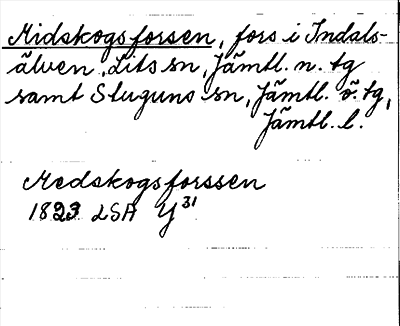 Midskogsforsen, fors i Indals-
älven, Lits sn, Jämtl. n. tg
samt Stuguns sn, Jämtl. ö. tg,
Jämtl. l.
Medskogsforssen
1823 LSA Y31